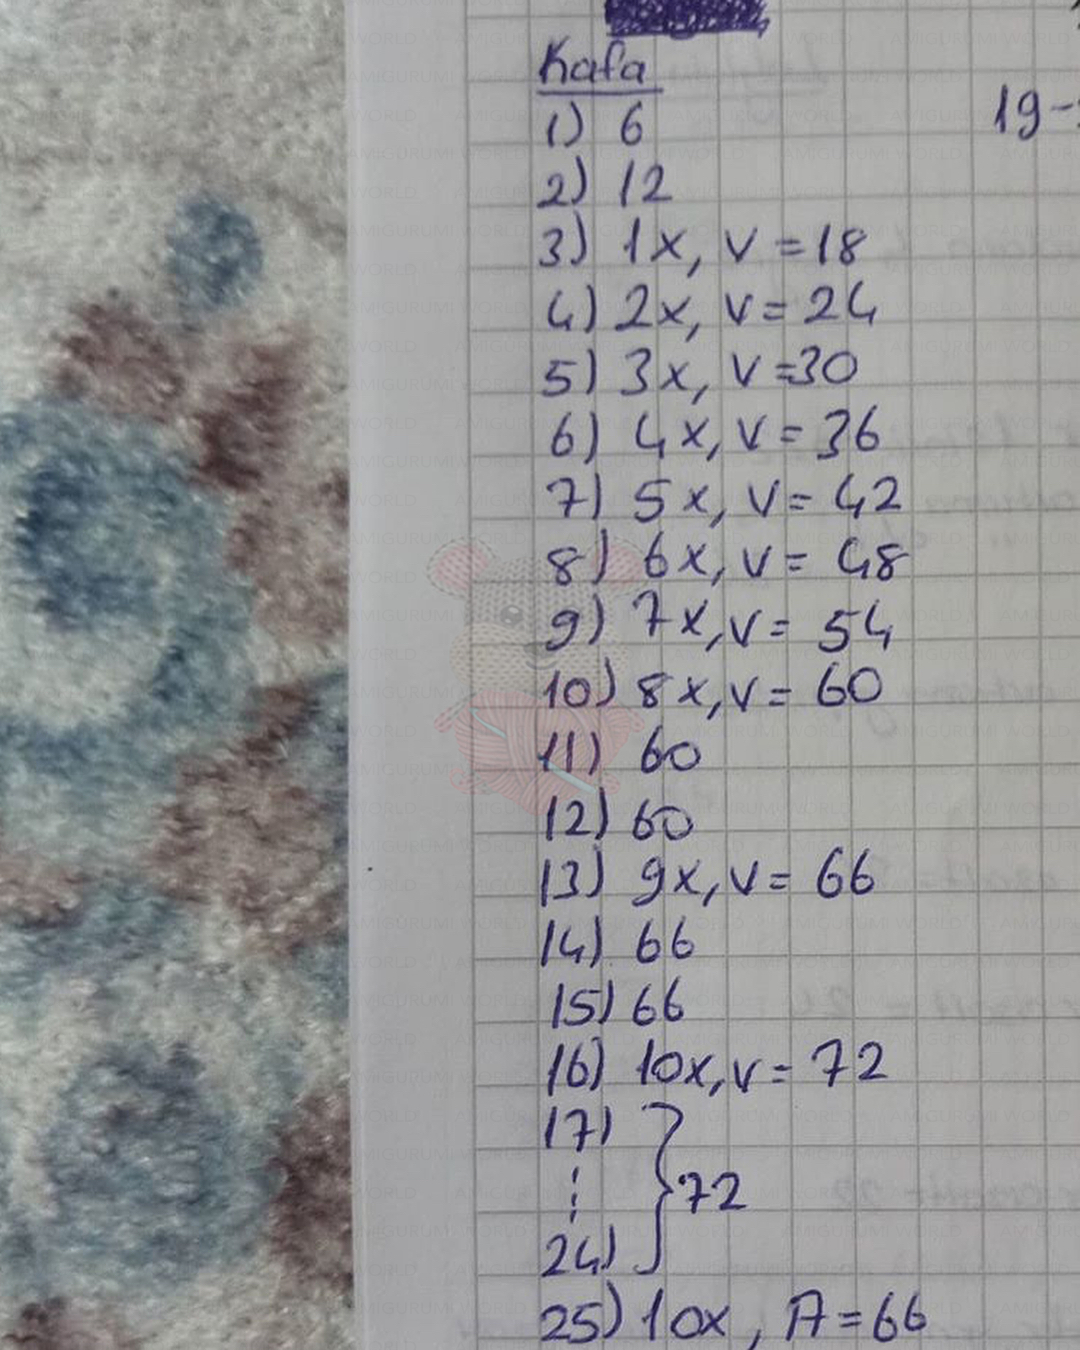 Kafa
19-
1) 6
2) 12
3) 1x, v = 18
4) 2x, v = 24
5) 3x, v =30
6) 4x, v = 36
7) 5x, v = 42
8) 6x, v = 48
9) 7x, v = 54
10) 8x, v = 60
11) 60
12) 60
13) 9x, v = 66
14) 66
15) 66
16) 10x, v = 72
17)
⋮ } 72
24)
25) 10x, A = 66